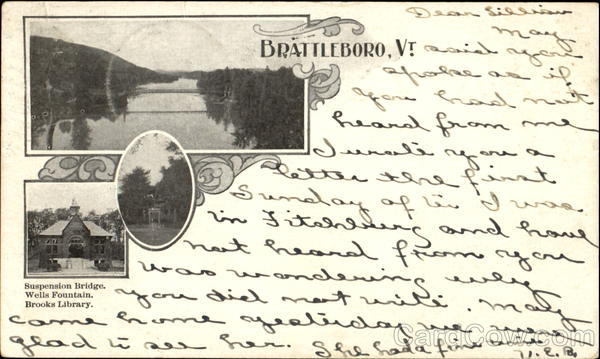 Dear Lillian
BRATTLEBORO, VT
May
said you
spoke as if
you had not
heard from me
I wrote you a
letter the first
Sunday of I was
in Fitchburg and have
not heard from you
was wondering why
you did not write. May
came home yesterday we were
glad to see her. She had a fine
Suspension Bridge.
Wells Fountain.
Brooks Library.
CardCow.com